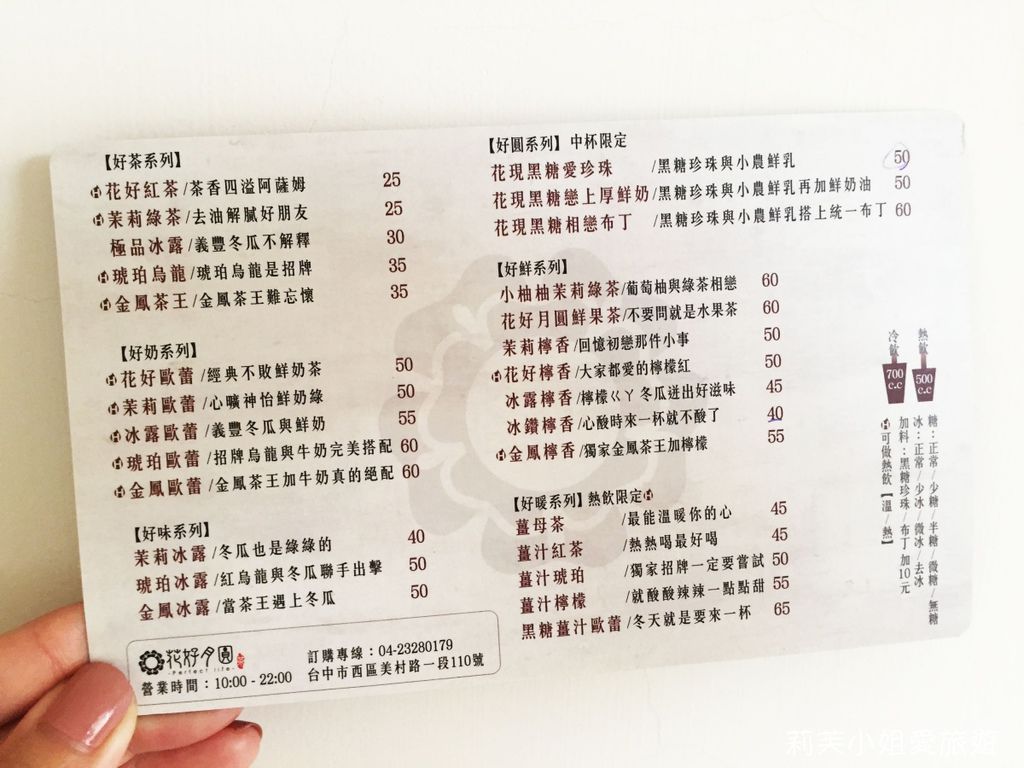 【好茶系列】
H花好紅茶/茶香四溢阿薩姆 25
H茉莉綠茶/去油解膩好朋友 25
極品冰露/義豐冬瓜不解釋 30
H琥珀烏龍/琥珀烏龍是招牌 35
H金鳳茶王/金鳳茶王難忘懷 35
【好奶系列】
H花好歐蕾/經典不敗鮮奶茶 50
H茉莉歐蕾/心曠神怡鮮奶綠 50
H冰露歐蕾/義豐冬瓜與鮮奶 55
H琥珀歐蕾/招牌烏龍與牛奶完美搭配 60
H金鳳歐蕾/金鳳茶王加牛奶真的絕配 60
【好味系列】
茉莉冰露/冬瓜也是綠綠的 40
琥珀冰露/紅烏龍與冬瓜聯手出擊 50
金鳳冰露/當茶王遇上冬瓜 50
花好月圓
-Perfect life-
營業時間：10:00 - 22:00
訂購專線：04-23280179
台中市西區美村路一段110號
【好圓系列】中杯限定
花現黑糖愛珍珠 /黑糖珍珠與小農鮮乳 50
花現黑糖戀上厚鮮奶/黑糖珍珠與小農鮮乳再加鮮奶油 50
花現黑糖相戀布丁 /黑糖珍珠與小農鮮乳搭上統一布丁 60
【好鮮系列】
小柚柚茉莉綠茶/葡萄柚與綠茶相戀 60
花好月圓鮮果茶/不要問就是水果茶 60
茉莉檸香/回憶初戀那件小事 50
H花好檸香/大家都愛的檸檬紅 50
冰露檸香/檸檬ㄍㄚ冬瓜迸出好滋味 45
冰鑽檸香/心酸時來一杯就不酸了 40
H金鳳檸香/獨家金鳳茶王加檸檬 55
【好暖系列】熱飲限定H
薑母茶 /最能溫暖你的心 45
薑汁紅茶 /熱熱喝最好喝 45
薑汁琥珀 /獨家招牌一定要嘗試 50
薑汁檸檬 /就酸酸辣辣一點點甜 55
黑糖薑汁歐蕾/冬天就是要來一杯 65
熱飲
500 c.c
冷飲
700 c.c
糖：正常/少糖/半糖/微糖/無糖
冰：正常/少冰/微冰/去冰
加料：黑糖珍珠/布丁加10元
H可做熱飲【溫/熱】
莉芙小姐愛旅遊